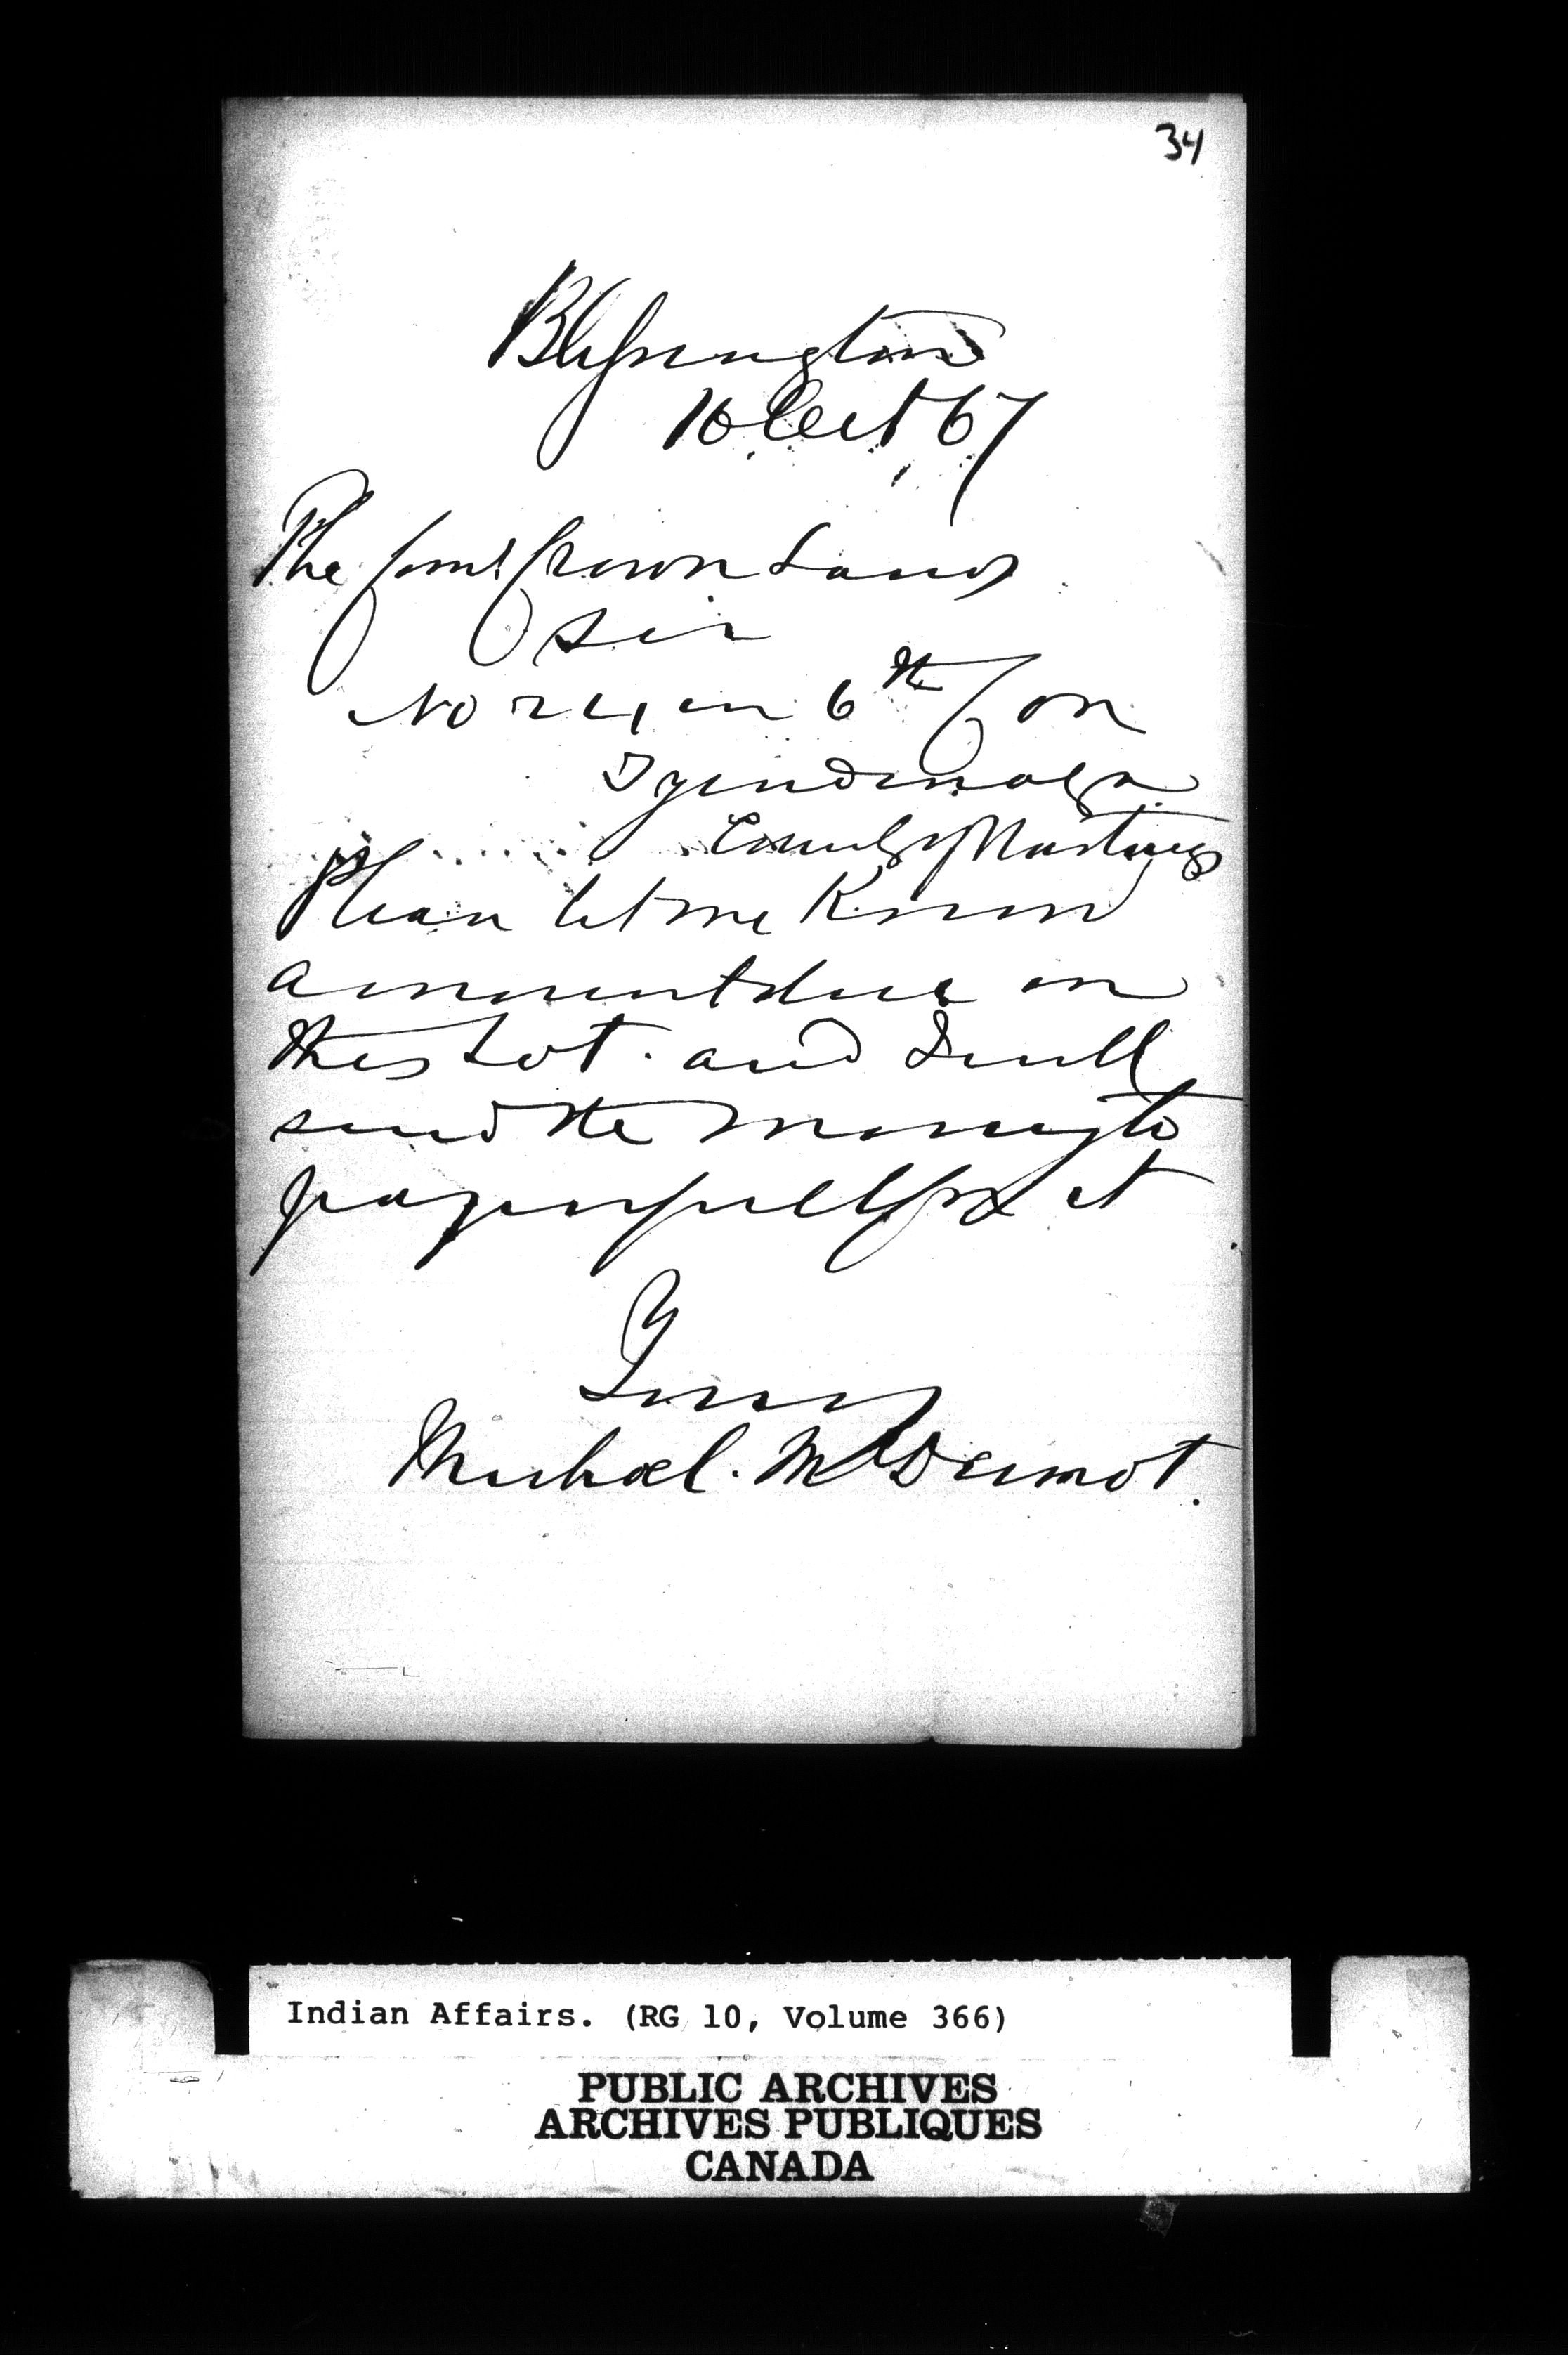 34
Blessington
16 Oct 67
The Comr Crown Lands
Sir
No 24 in 6th Con
Tyendinaga
County Hastings
Please let me Know
amount due on
this Lot. and I will
send the money to
pay in full for it
Yours
Michael. McDermot.
Indian Affairs. (RG 10, Volume 366)
PUBLIC ARCHIVES
ARCHIVES PUBLIQUES
CANADA